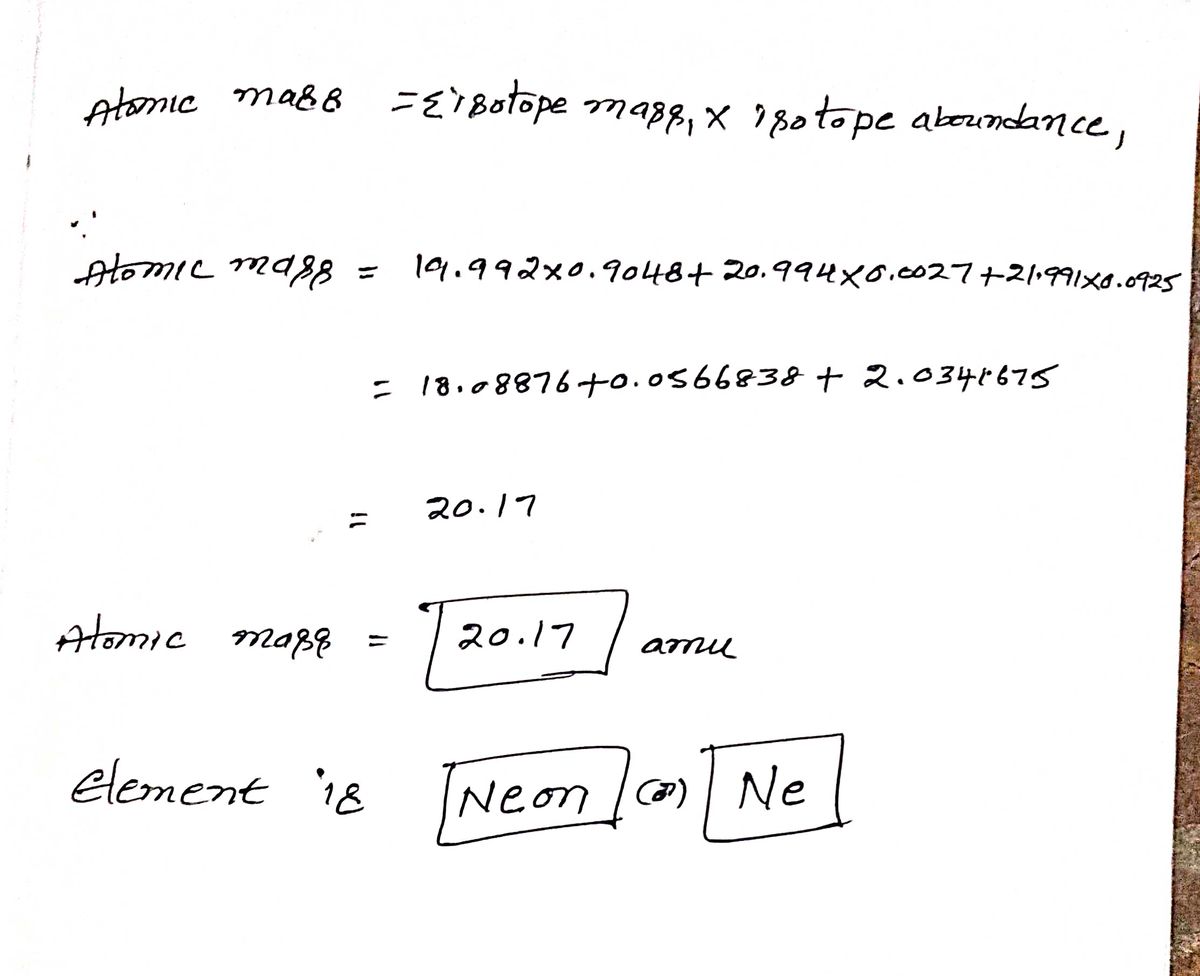 Atomic mass = Σ isotope mass, x isotope aboundance,
∵
Atomic mass = 19.992x0.9048+ 20.994x0.0027+21.991x0.0925
= 18.08876+0.0566838 + 2.0341675
= 20.17
Atomic mass = 20.17 amu
Element is Neon (or) Ne